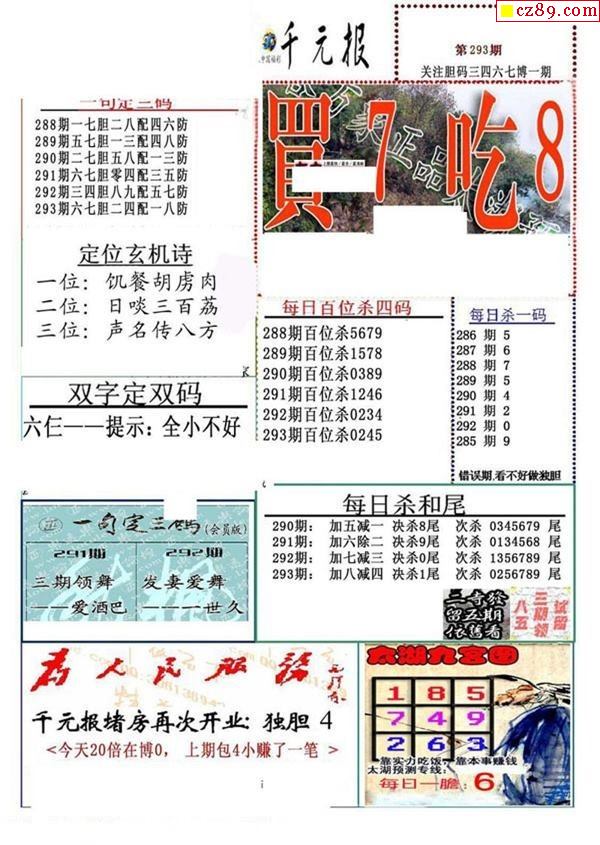 cz89.com
千元报
第293期
关注胆码三四六七博一期
一句定三码
288期一七胆二八配四六防
289期五七胆一三配四八防
290期二七胆五八配一三防
291期六七胆零四配三五防
292期三四胆八九配五七防
293期六七胆二四配一八防
買7吃8
定位玄机诗
一位：饥餐胡虏肉
二位：日啖三百荔
三位：声名传八方
每日百位杀四码
288期百位杀5679
289期百位杀1578
290期百位杀0389
291期百位杀1246
292期百位杀0234
293期百位杀0245
每日杀一码
286 期 5
287 期 6
288 期 7
289 期 5
290 期 4
291 期 2
292 期 0
285 期 9
错误期,看不好做独胆
双字定双码
六仨——提示：全小不好
一句定三码(会员版)
291期
三期领舞
——爱酒巴
292期
发妻爱舞
——一世久
每日杀和尾
290期： 加五减一 决杀8尾 次杀 0345679 尾
291期： 加六除二 决杀9尾 次杀 0134568 尾
292期： 加七减三 决杀0尾 次杀 1356789 尾
293期： 加八减四 决杀1尾 次杀 0256789 尾
三奇發
留五期
依舊看
试留
三期领
八五
为人民服务
千元报堵房再次开业: 独胆 4
<今天20倍在博0, 上期包4小赚了一笔 >
太湖九宫图
1 8 5
7 4 9
2 6 3
靠实力吃饭,靠本事赚钱
太湖预测专线:
每日一膽: 6